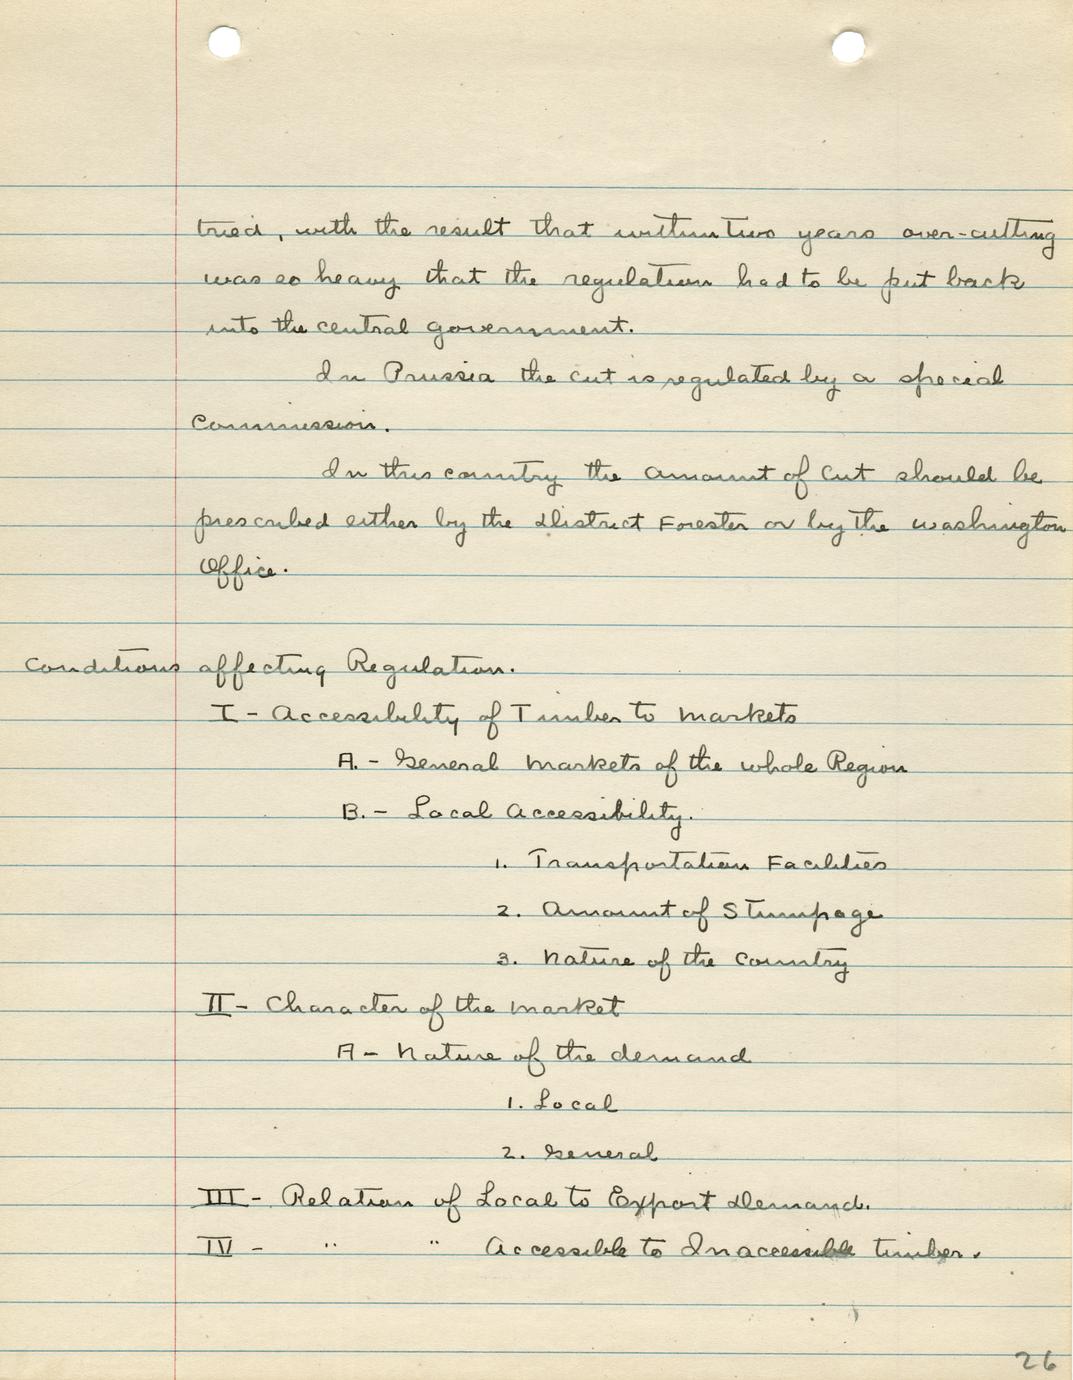 tried, with the result that within two years over-cutting
was so heavy that the regulation had to be put back
into the central government.
In Prussia the cut is regulated by a special
Commission.
In this country the amount of cut should be
prescribed either by the District Forester or by the Washington
Office.
Conditions affecting Regulation.
I - Accessibility of Timber to Markets
A. - General Markets of the whole Region
B. - Local Accessibility.
1. Transportation Facilities
2. Amount of Stumpage
3. Nature of the Country
II - Character of the Market
A - Nature of the demand
1. Local
2. General
III - Relation of Local to Export Demand.
IV - " " Accessible to Inaccessible timber.
26